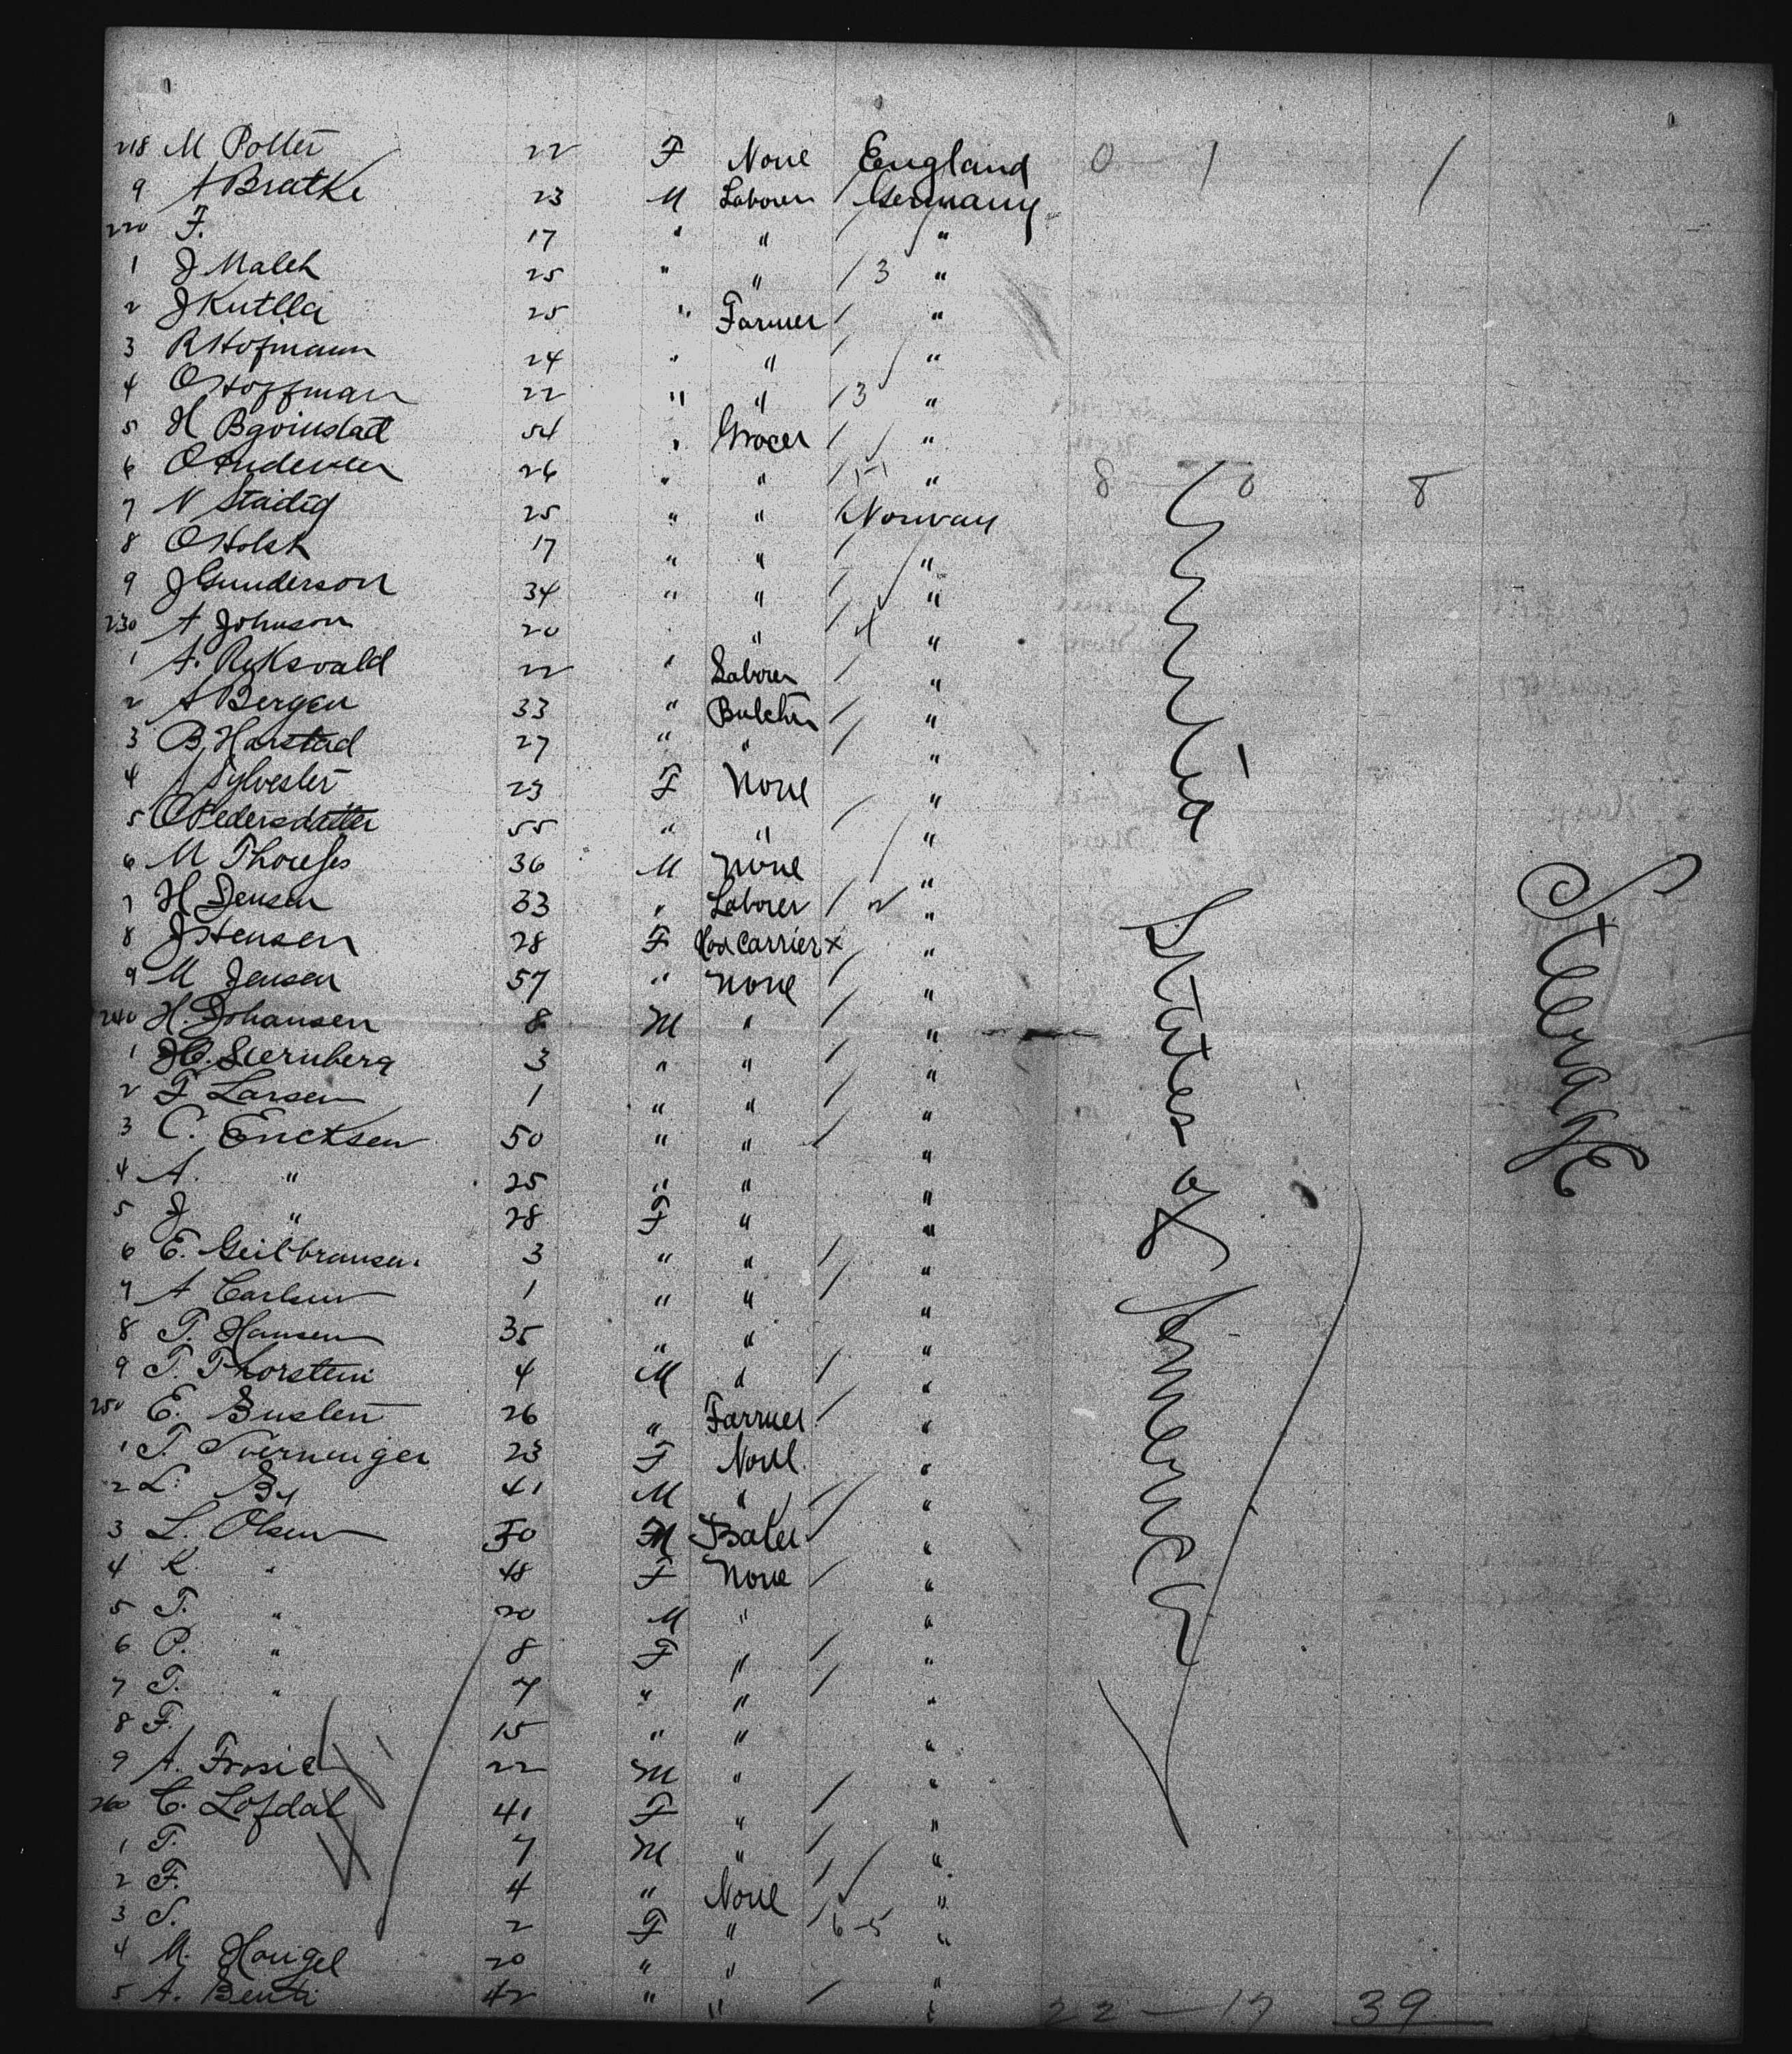 218 M Potter 22 F None England 0 — 1 1
9 A Bratke 23 M Laborer / Germany
220 F. 17 " " / "
1 J Malek 25 " " / 3 "
2 J Kutlla 25 " Farmer / "
3 R Hofmann 24 " " / "
4 O Hoffman 22 " " / 3 "
5 H 54 " Grocer / "
6 O 26 " " / "
7 N Stadig 25 " " / Norway 8 — 0 8
8 O Holst 17 " " / "
9 J Gunderson 34 " " / "
230 A Johnson 20 " / "
1 A. Ryksvald 22 " Laborer / "
2 A Bergen 33 " Butcher / "
3 B Harstad 27 " " / "
4 A Sylvester 23 F None "
5 O Pedersdatter 55 " " / "
6 M 36 M None "
7 H Jensen 33 " Laborer / 2 "
8 J Hensen 28 F Hod Carrier x "
9 M Jensen 57 " None / "
240 H. Johansen 8 M " / "
1 H. Sternberg 3 " " / "
2 F Larsen 1 " " / "
3 C. Ericksen 50 " " / "
4 A. " 25 " " "
5 J " 28 F " "
6 E. 3 " " / "
7 A Carlsen 1 " " / "
8 T. Hansen 35 " " "
9 T. Thorstein 4 M " / "
250 E. 26 " Farmer / "
1 T. 23 F None "
2 L. By 41 M " / "
3 L. Olsen 50 M Baker / "
4 K. " 48 F None / "
5 T. " 20 M " "
6 P. " 8 F " / "
7 T. " 7 " " / "
8 F. 15 " " "
9 A. 22 M " / "
260 C. Lofdal 41 F " / "
1 T. 7 M " / "
2 F. 4 " None / "
3 S. 2 F " / 6-5 "
4 M. Hougel 20 " " "
5 A. Benti 42 " " / "
22 — 17 39
United States of America
Steerage